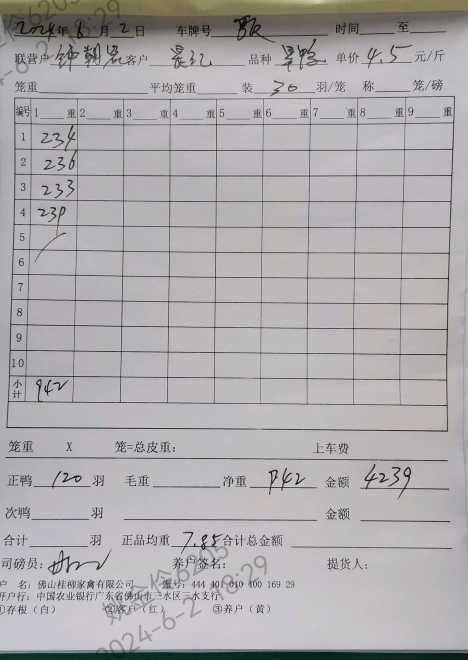 2024年 6月 2日 车牌号 时间 至
联营户 钟 客户 晨记 品种 旱鸭 单价 4.5 元/斤
笼重 平均笼重 装 30 羽/笼 称 笼/磅
编号 1 重 2 重 3 重 4 重 5 重 6 重 7 重 8 重 9 重
1 234
2 236
3 233
4 239
5
6
7
8
9
10
小计 942
笼重 X 笼=总皮重: 上车费
正鸭 120 羽 毛重 净重 942 金额 4239
次鸭 羽 金额
合计 羽 正品均重 7.85 合计总金额
司磅员: 养户签名: 提货人:
户 名: 佛山桂柳家禽有限公司 账号: 444 401 040 400 169 29
开户行: 中国农业银行广东省佛山市三水区三水支行
①存根(白) ②客户(红) ③养户(黄)
2024-6-2 18:29